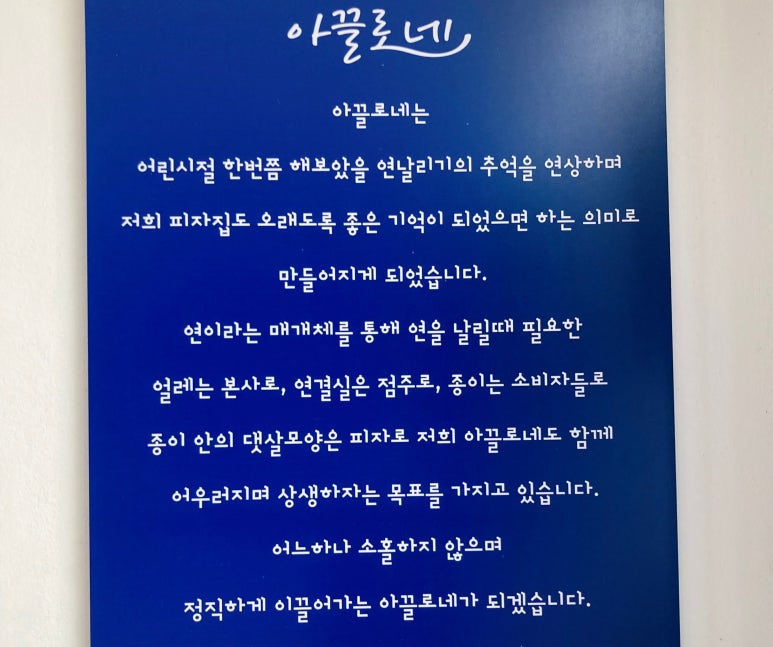 아끌로네
아끌로네는
어린시절 한번쯤 해보았을 연날리기의 추억을 연상하며
저희 피자집도 오래도록 좋은 기억이 되었으면 하는 의미로
만들어지게 되었습니다.
연이라는 매개체를 통해 연을 날릴때 필요한
얼레는 본사로, 연결실은 점주로, 종이는 소비자들로
종이 안의 댓살모양은 피자로 저희 아끌로네도 함께
어우러지며 상생하자는 목표를 가지고 있습니다.
어느하나 소홀하지 않으며
정직하게 이끌어가는 아끌로네가 되겠습니다.